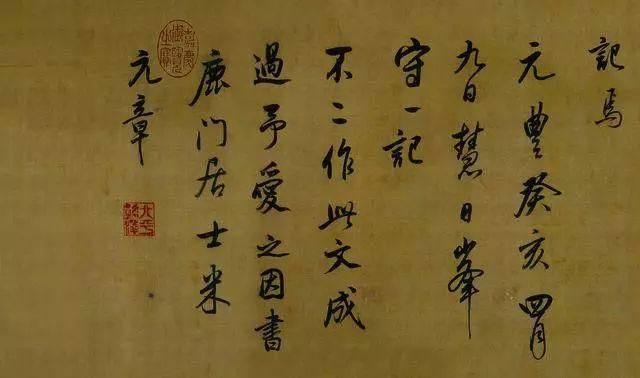 記焉
元豐癸亥四月
九日慧日峯
守一記
不二作此文成
過予愛之因書
鹿門居士米
元章
嘉慶御覽之寶